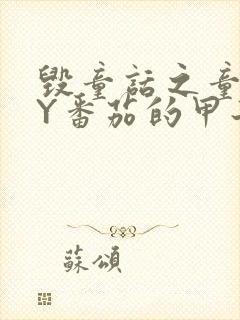 毁童话之童
Y番茄的甲
蘇頌